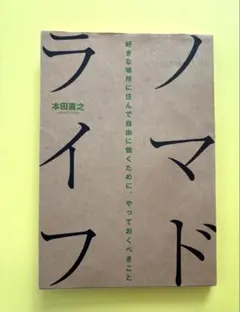 ノマド
ライフ
好きな場所に住んで自由に働くために、やっておくべきこと
本田直之